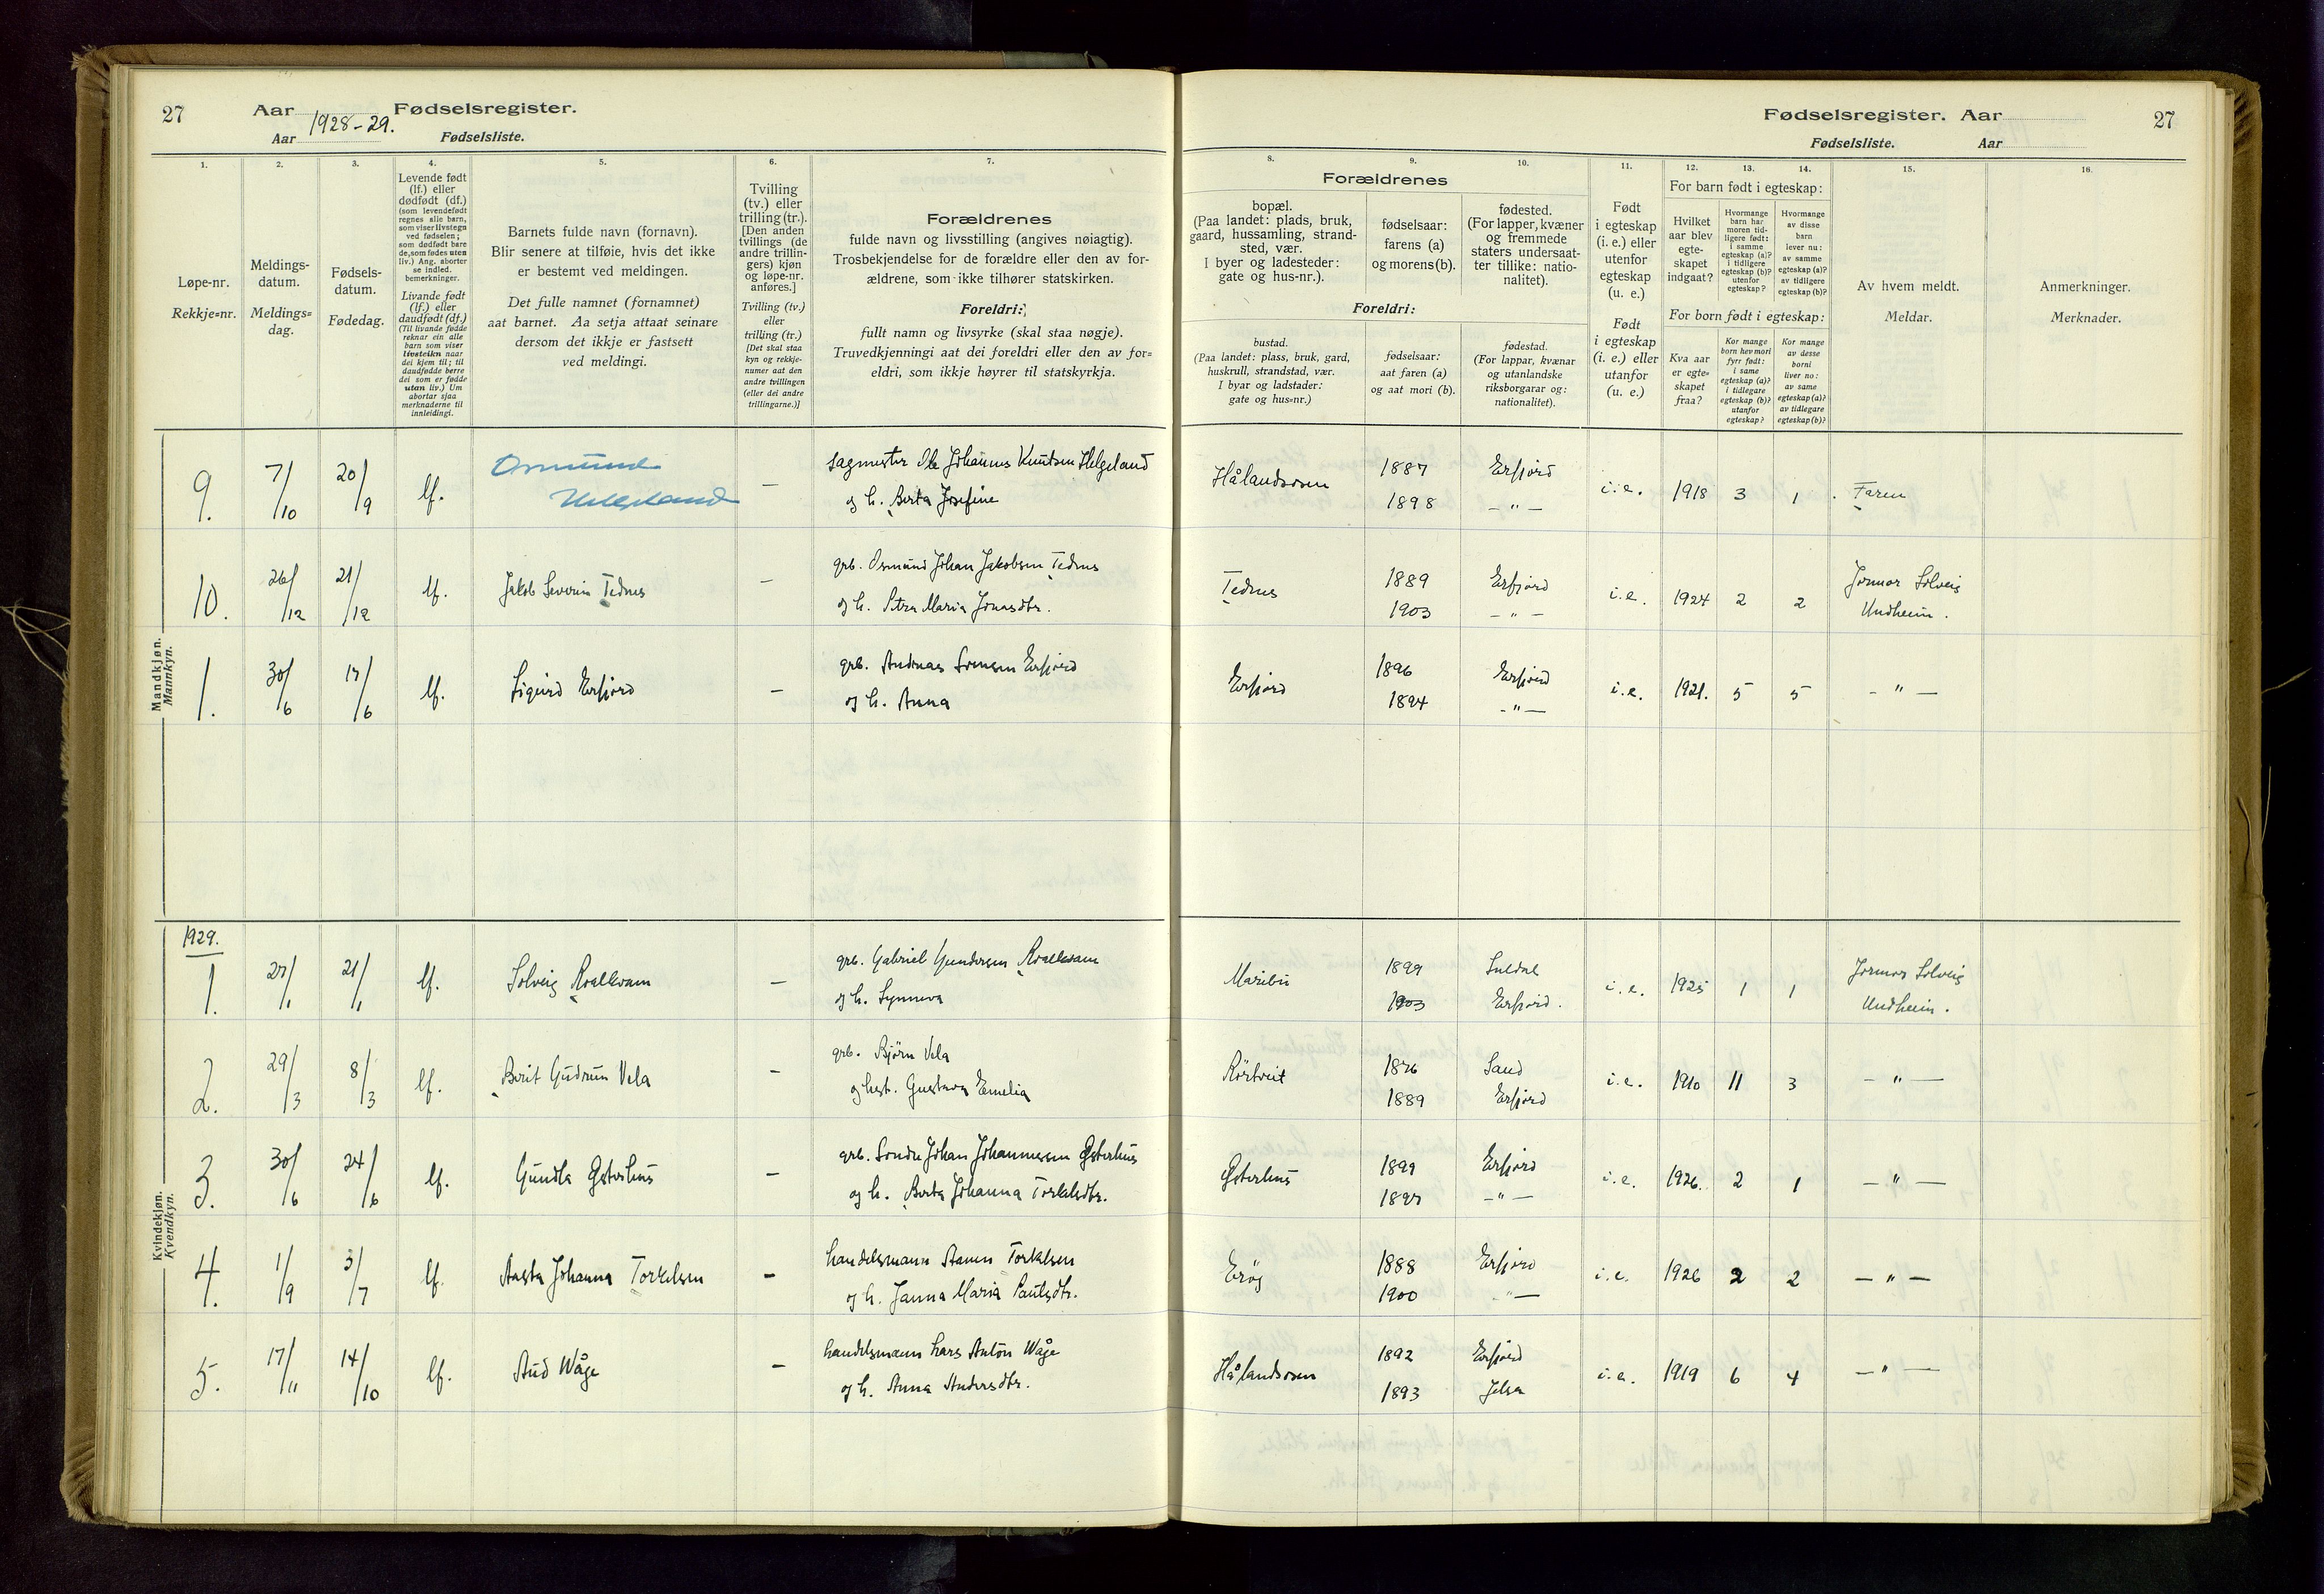 27 Aar 1928-29. Fødselsregister.
Aar Fødselsliste.
Fødselsregister. Aar 27
Fødselsliste. Aar
1. 2. 3. 4. 5. 6. 7. 8. 9. 10. 11. 12. 13. 14. 15. 16.
Løpe-nr.
Rekkje=nr.
Meldings-
datum.
Meldings=
dag.
Fødsels-
datum.
Fødedag.
Levende født
(lf.) eller
dødfødt (df.)
(som levendefødt
regnes alle barn,
som viser livstegn
ved fødselen;
som dødfødt bare
de, som fødes uten
liv.) Ang. aborter
se indled.
bemerkninger.
Livande født
(lf.) eller
daudfødt (df.)
(Til livande fødde
reknar ein alle
barn som viser
livsteikn naar
dei kjem til; til
daudfødde berre
dei som er fødde
utan liv.) Um
abortar sjaa
merknaderne til
innleidingi.
Barnets fulde navn (fornavn).
Blir senere at tilføie, hvis det ikke
er bestemt ved meldingen.
Det fulle namnet (fornamnet)
aat barnet. Aa setja attaat seinare
dersom det ikkje er fastsett
ved meldingi.
Tvilling
(tv.) eller
trilling (tr.).
[Den anden
tvillings (de
andre trillin-
gers) kjøn
og løpe-nr.
anføres.]
Tvilling (tv.)
eller
trilling (tr.)
[Det skal staa
kyn og rekkje-
numer aat den
andre tvillingen
(eller dei andre
trillingarne.)]
Forældrenes
fulde navn og livsstilling (angives nøiagtig).
Trosbekjendelse for de forældre eller den av for-
ældrene, som ikke tilhører statskirken.
Foreldri:
fullt namn og livsyrke (skal staa nøgje).
Truvedkjenningi aat dei foreldri eller den av for=
eldri, som ikkje høyrer til statskyrkja.
Forældrenes
bopæl.
(Paa landet: plads, bruk,
gaard, hussamling, strand-
sted, vær.
I byer og ladesteder:
gate og hus-nr.).
fødselsaar:
farens (a)
og morens (b).
fødested.
(For lapper, kvæner
og fremmede
staters undersaat-
ter tillike: natio-
nalitet).
Foreldri:
bustad.
(Paa landet: plass, bruk, gard,
huskrull, strandstad, vær.
I byar og ladstader:
gate og hus=nr.)
fødselsaar:
aat faren (a)
og aat mori (b).
fødestad.
(For lappar, kvænar
og utanlandske
riksborgarar og:
nationalitet).
Født
i egteskap
(i. e.) eller
utenfor
egteskap
(u. e.)
Født
i egteskap
(i. e.) eller
utanfor
(u. e.)
For barn født i egteskap:
Hvilket
aar blev
egte-
skapet
indgaat?
Hvormange
barn har
moren tid-
ligere født:
i samme
egteskap (a)?
i tidligere
egteskap (b)?
utenfor
egteskap?
Hvormange
av disse
barn
lever nu:
av samme
egteskap (a)?
av tidligere
egteskap (b)?
For born født i egteskap:
Kva aar
er egte=
skapet
fraa?
Kor mange
born hev mori
fyrr født:
i same
egteskap (a)?
i tidlegare
egteskap (b)?
utanfor
egteskap?
Kor mange
av desse
borni
liver no:
av same
egteskap (a)?
av tidlegare
egteskap (b)?
Av hvem meldt.
Meldar.
Anmerkninger.
Merknader.
Mandkjøn.
Mannkyn.
9. 7/10 20/9 lf. Osmund Helgeland — sagmester Ole Johannes Knutsen Helgeland Hålandsosen 1887 Erfjord i.e. 1918 3 1 Faren
og h. Berta Josefine 1898 — " —
10. 26/12 21/12 lf. Jakob Severin Tednes — grb. Osmund Johan Jakobsen Tednes Tednes 1889 Erfjord i.e. 1924 2 2 Jormor Solveig
og h. Petra Maria Jonasdtr. 1903 — " — Undheim.
1. 30/6 17/6 lf. Sigurd Erfjord — grb. Andreas Simensen Erfjord Erfjord 1896 Erfjord i.e. 1921. 5 5 — " —
og h. Anna 1894 — " —
Kvindekjøn.
Kvendkyn.
1929.
1. 27/1 21/1 lf. Solveig Roalkvam — grb. Gabriel Gundersen Roalkvam Maribu 1899 Suldal i.e. 1925 1 1 Jormor Solveig
og h. Synneva 1903 Erfjord. Undheim.
2. 29/3 8/3 lf. Berit Gudrun Vela — grb. Bjørn Vela Rørtveit 1876 Sand i.e. 1910 11 3 — " —
og hust. Gustava Emelia 1889 Erfjord
3. 30/6 24/6 lf. Gundla Østerhus — grb. Sondre Johan Johannessen Østerhus Østerhus 1899 Erfjord i.e. 1926. 2 1 — " —
og h. Berta Johanna Torkelsdtr. 1897 — " —
4. 1/9 3/7 lf. Aasta Johanna Torkelsen — handelsmann Steinn Torkelsen Erøy 1888 Erfjord i.e. 1926 2 2 — " —
og h. Janna Maria Paulsdtr. 1900 — " —
5. 17/11 14/10 lf. Aud Wåge — handelsmann Lars Anton Wåge Hålandsosen 1892 Erfjord i.e. 1919 6 4 — " —
og h. Anna Andersdtr. 1893 Jelsa